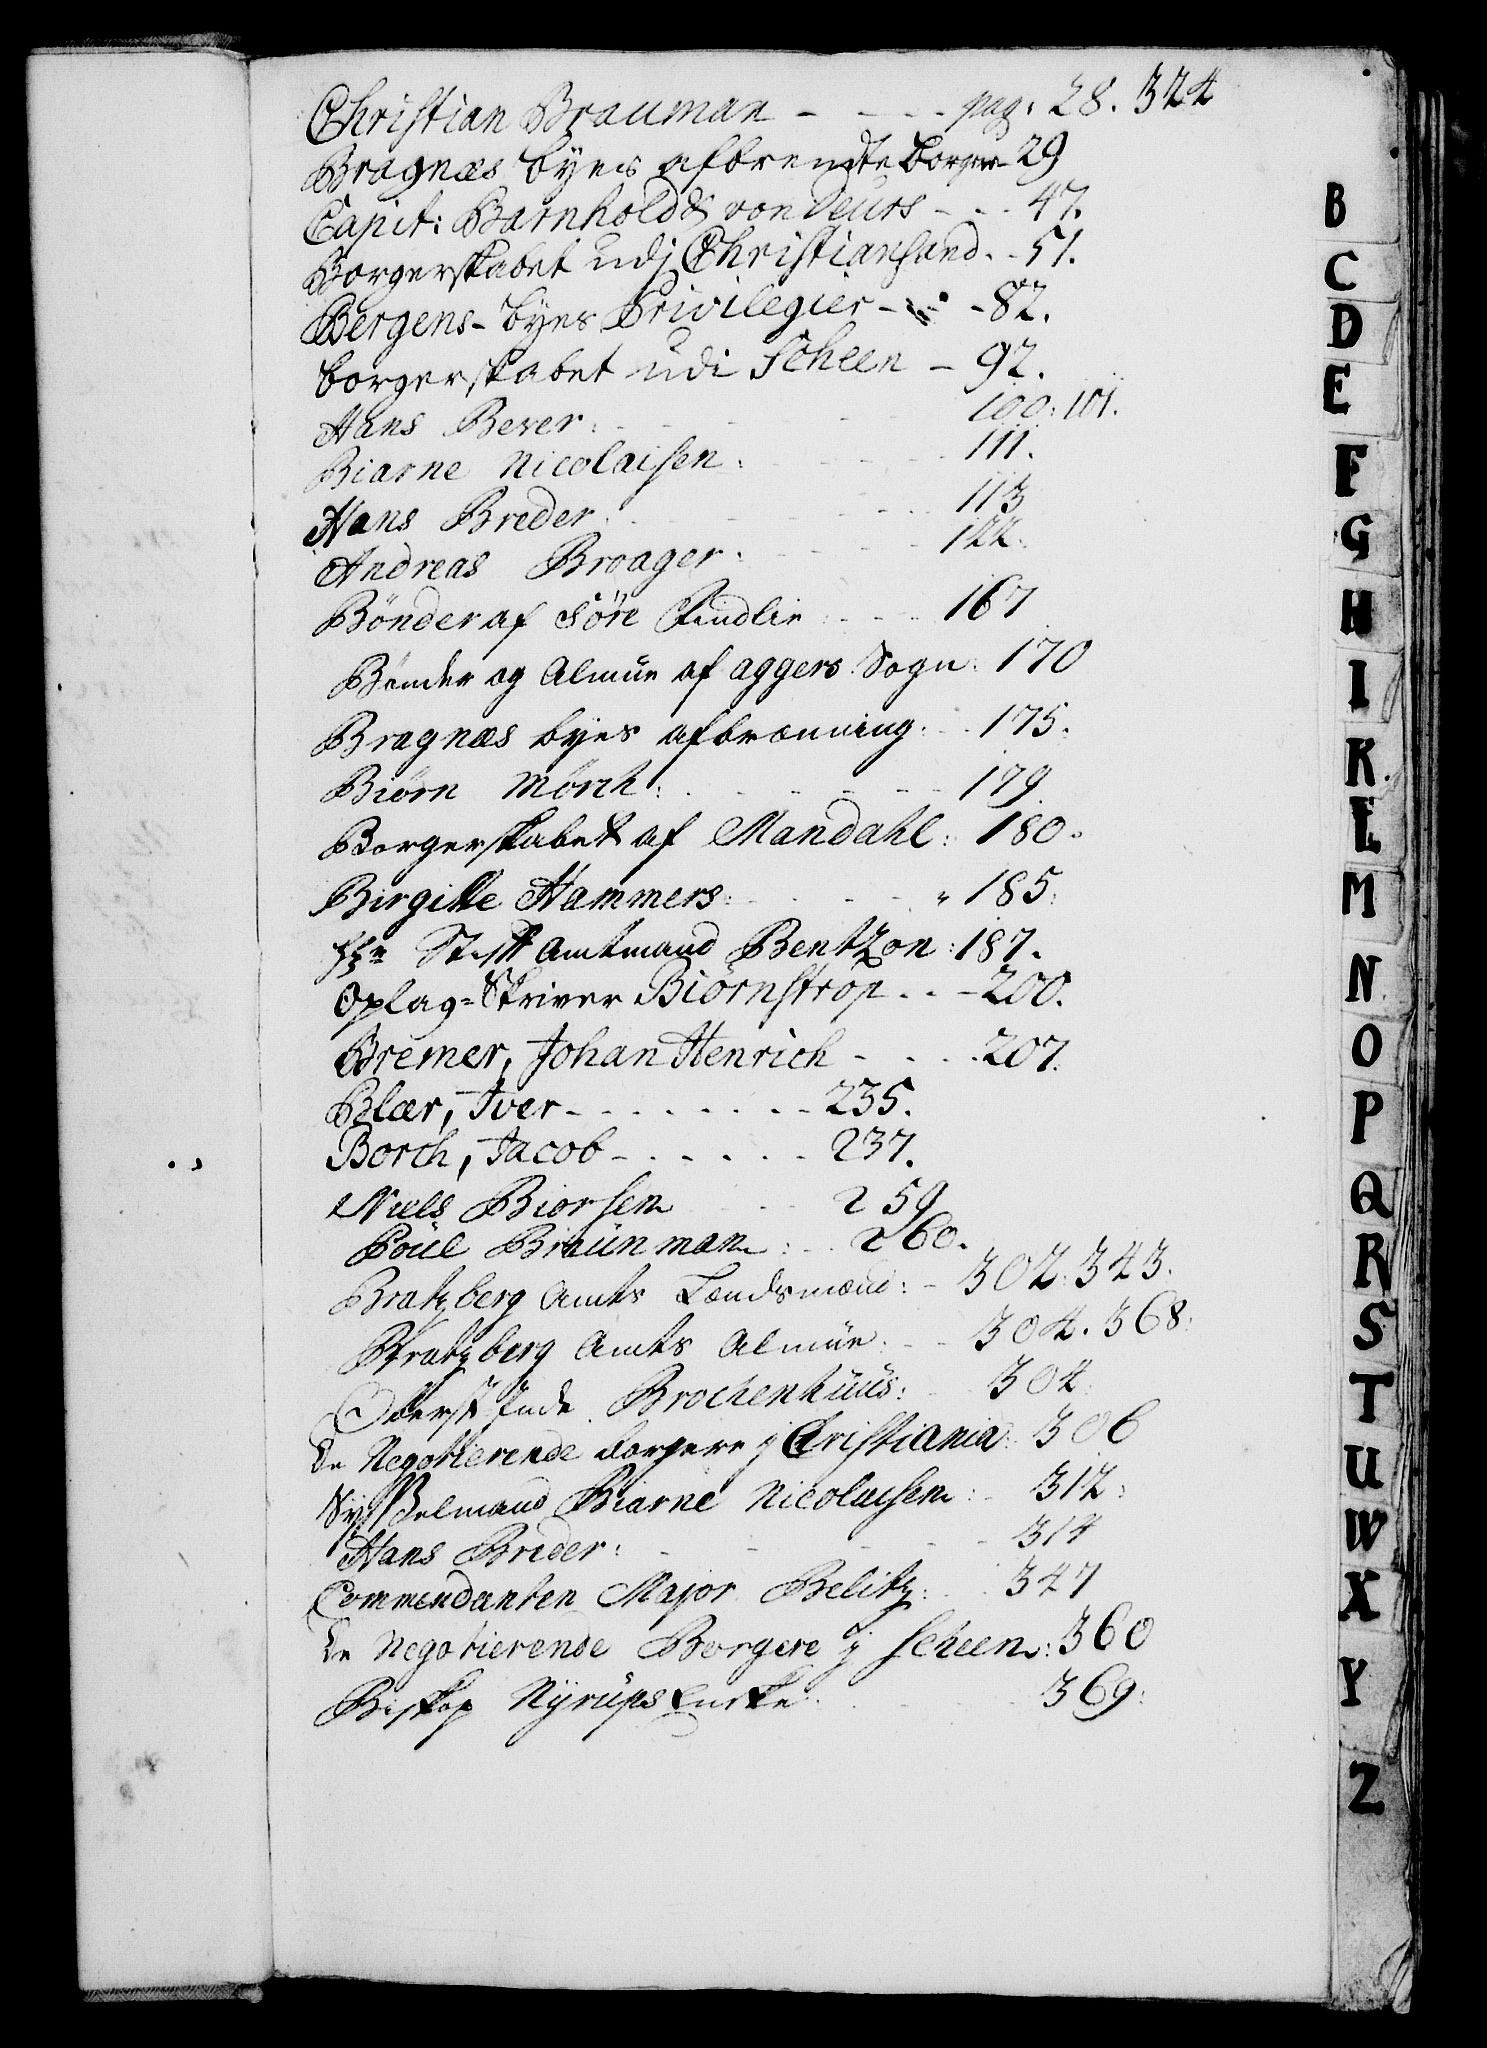 Christian Brauman - - - - pag: 28. 324
Bragnæs byes afbrendte borger - 29
Capit: Barnholdt von Deurs - - - 47.
Borgerskabet udj Christiansand. - 51.
Bergens-byes Privilegier - - - 82.
borgerskabet udi Scheen - 92.
Hans Bever: - - - 100: 101.
Biarne Nicolaisen: - - - 111.
Hans Breder: - - - 113
Andreas Broager: - - - 122:
Bönder af Söre : - - - 167
Bönder og Almüe af aggers Sogn: 170
Bragnæs byes afbrænning: - - 175.
Biörn Mörch: - - - 179.
Borgerskabet af Mandahl: 180.
Birgitte Hammers: - - - 185:
Hr Stift Amtmand Bentzon: 187.
Oplag=Skriver Biörnstrop - - - 200.
Bremer, Johan Henrich - - - 207.
Blær, Iver - - - - - - 235.
Borch, Jacob - - - - - 237.
Niels Biorsen - - 259
Poül Braünman: - - 260.
Bratzberg Amts Lændsmænd: - 302: 343.
Bratzberg Amts Almüe: - - 304. 368:
Oberst Brochenhüüs: - 304.
De Negotierende borgere j Christiania: 306
Sysselmand Biarne Nicolaisen: - 312:
Hans Breder: - - - 314
Commendanten Major Belitz: - - 347
De Negotierende Borgere j Scheen: 360
Biskop Nyrüps Encke: - - 369:
B
C
D
E
F
G
H
I
K
L
M
N
O
P
Q
R
S
T
U
W
X
Y
Z